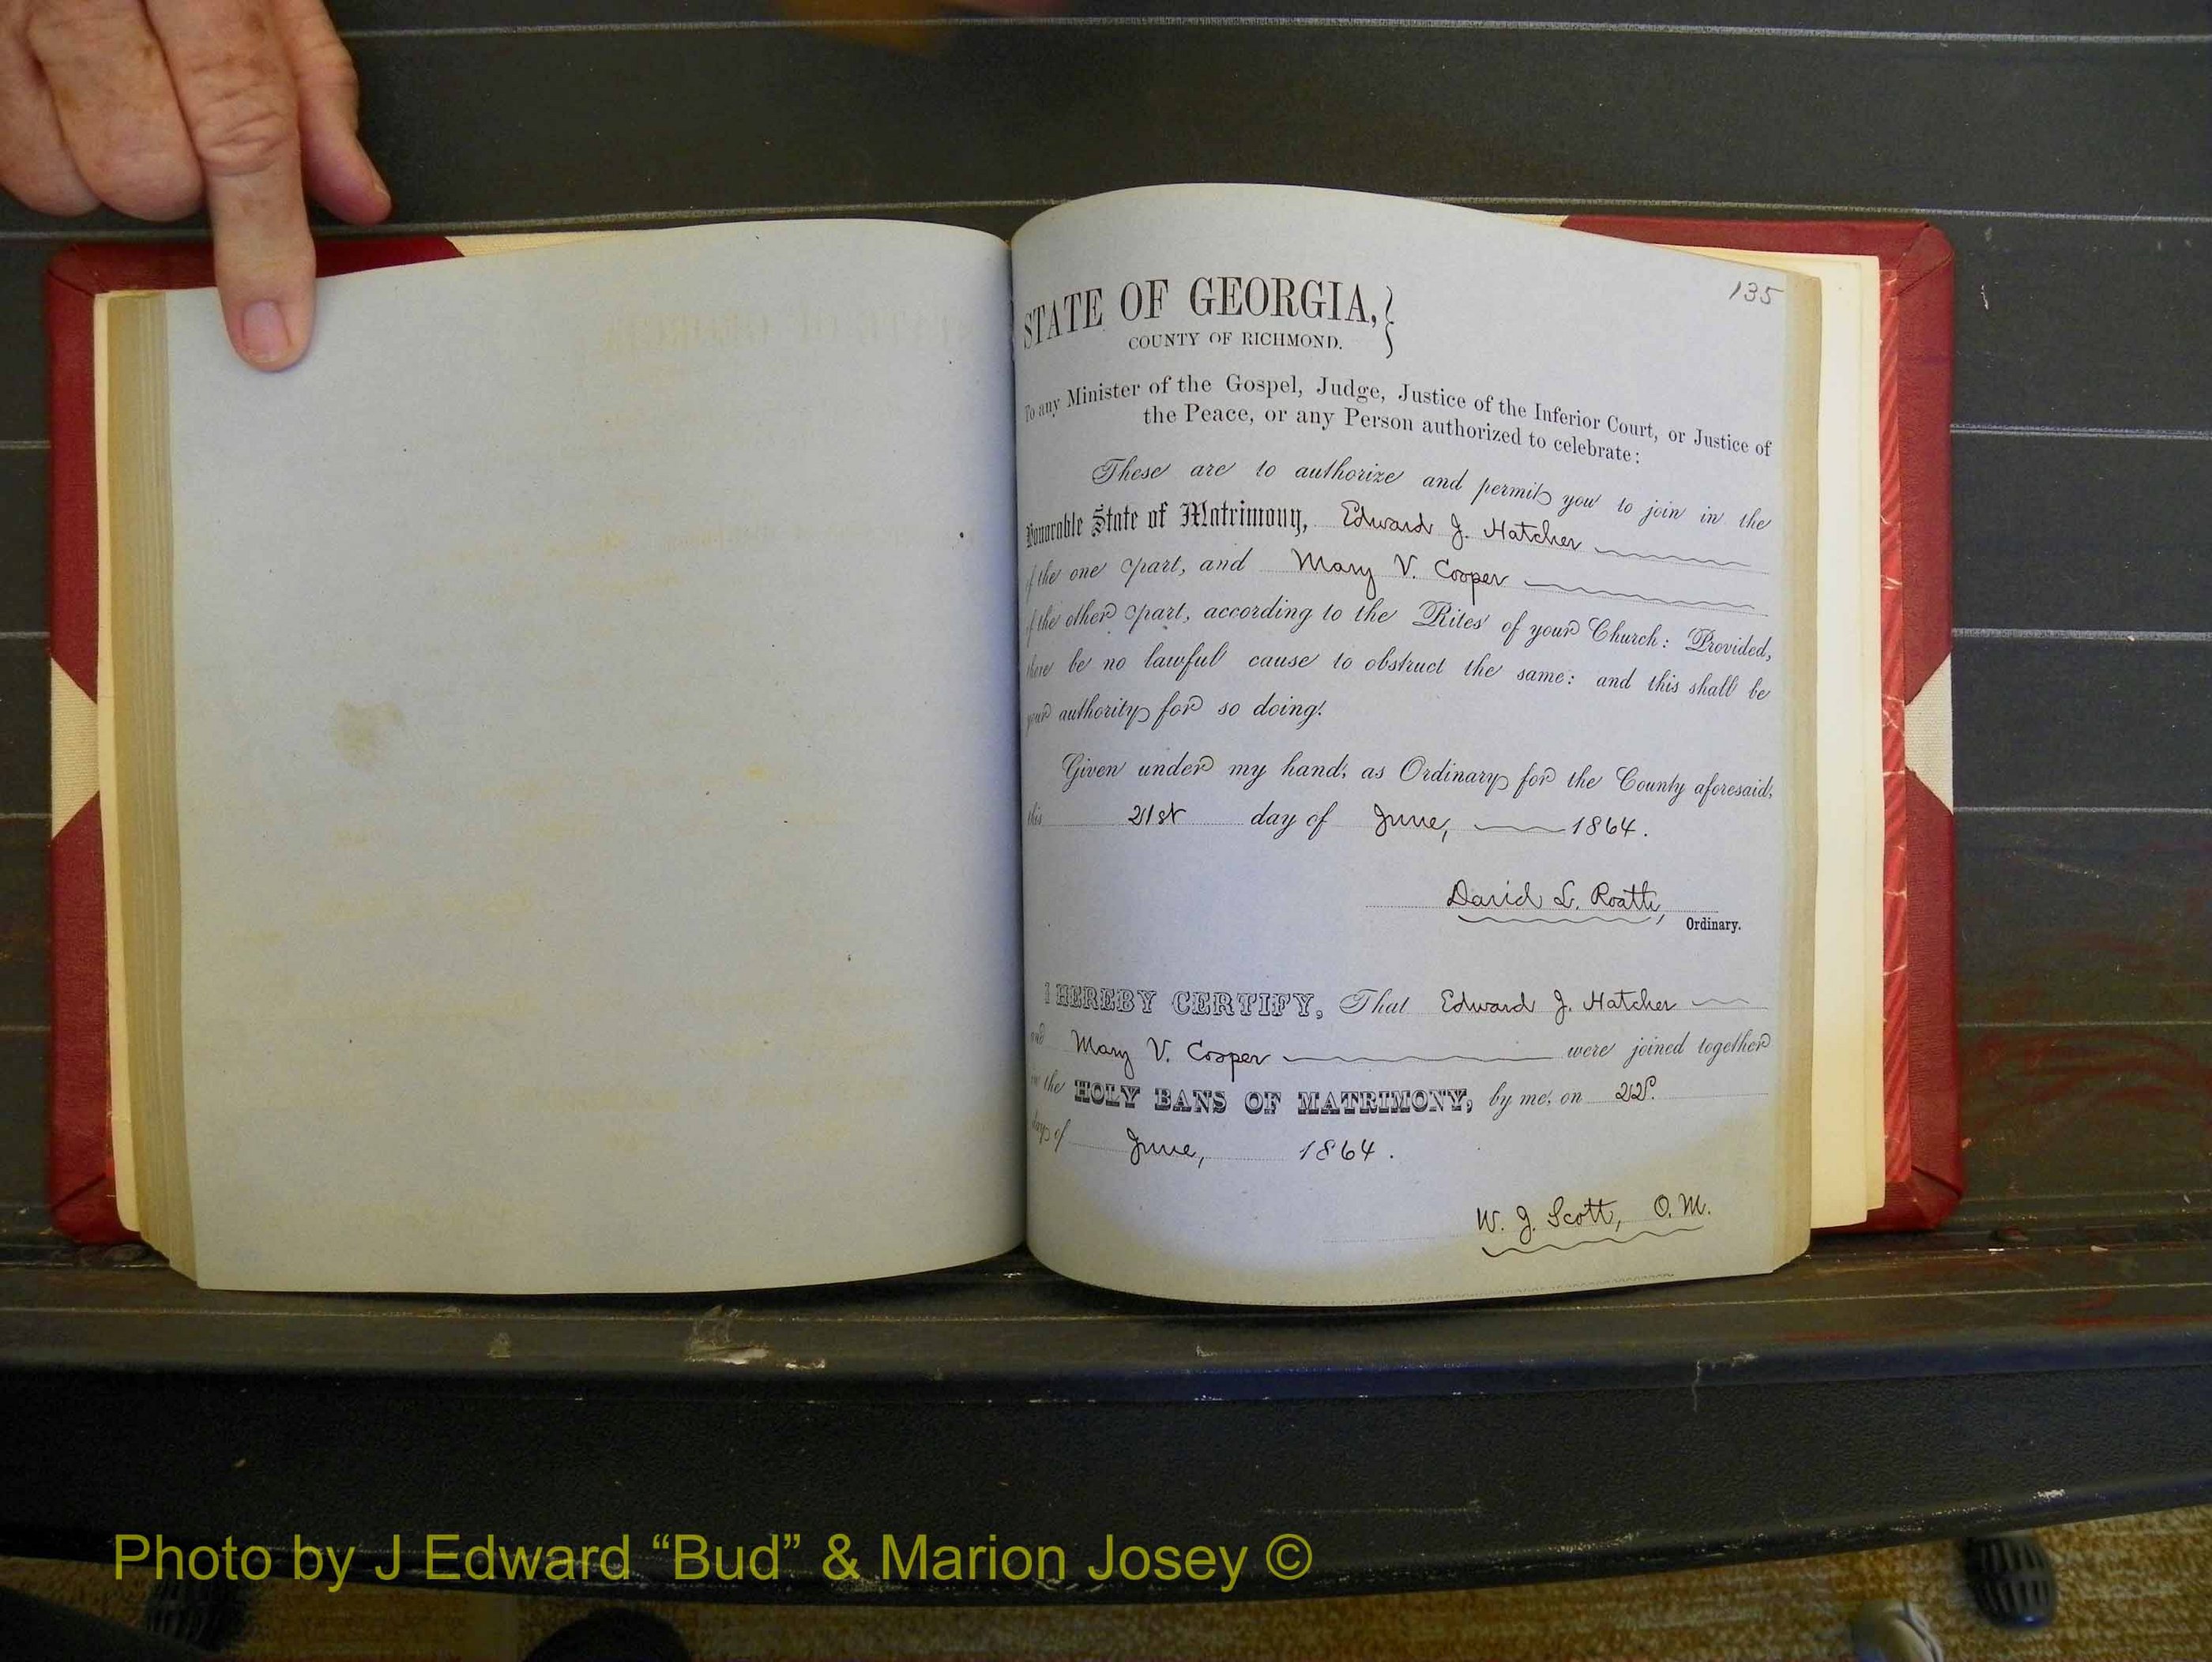 135
STATE OF GEORGIA,
COUNTY OF RICHMOND.
To any Minister of the Gospel, Judge, Justice of the Inferior Court, or Justice of
the Peace, or any Person authorized to celebrate:
These are to authorize and permit you to join in the
Honorable State of Matrimony, Edward J. Hatcher
of the one part, and Mary V. Cooper
of the other part, according to the Rites of your Church: Provided,
there be no lawful cause to obstruct the same: and this shall be
your authority for so doing.
Given under my hand, as Ordinary for the County aforesaid,
this 21st day of June, 1864.
David L. Roath,
Ordinary.
I HEREBY CERTIFY, That Edward J. Hatcher
and Mary V. Cooper were joined together
in the HOLY BANS OF MATRIMONY, by me, on 22d.
day of June, 1864.
W. J. Scott, O. M.
Photo by J Edward “Bud” & Marion Josey ©